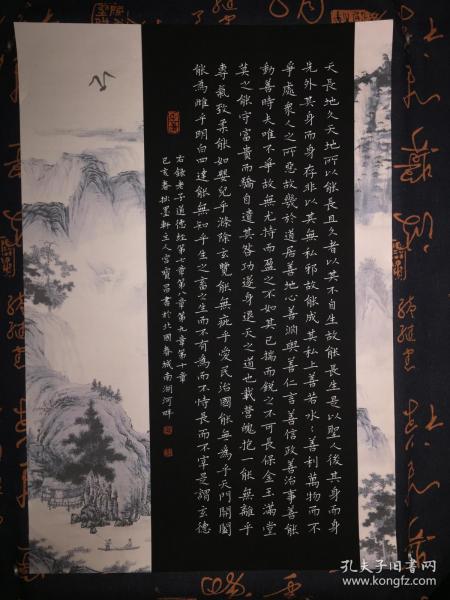 天長地久天地所以能長且久者以其不自生故能長生是以聖人後其身而身
先外其身而身存非以其無私邪故能成其私上善若水〻善利萬物而不
爭處衆人之所惡故幾於道居善地心善淵與善仁言善信政善治事善能
動善時夫唯不爭故無尤持而盈之不如其已揣而銳之不可長保金玉滿堂
莫之能守富貴而驕自遺其咎功遂身退天之道也載營魄抱一能無離乎
專氣致柔能如嬰兒乎滌除玄覽能無疵乎愛民治國能無為乎天門開闔
能為雌乎明白四達能無知乎生之畜之生而不有為而不恃長而不宰是謂玄德
右錄老子道德經第七章第八章第九章第十章
己亥春拙墨軒主人宮寶昌書於北國春城南湖河畔
孔夫子旧书网
www.kongfz.com